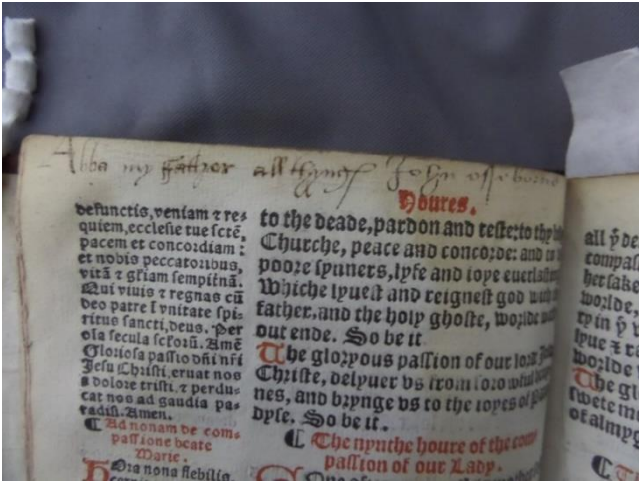 Abba my father all thyngs John osseborne
Houres.
defunctis, veniam ⁊ re⸗
quiem, ecclesie tue sctē,
pacem et concordiam:
et nobis peccatoribus,
vitā ⁊ gľiam sempitnā.
Qui viuis ⁊ regnas cū
deo patre ī vnitate spi⸗
ritus sancti, deus. Per
oīa secula sclorū. Amē
Gloriosa passio dn̄i nr̄i
Jesu Christi, eruat nos
a dolore tristi, ⁊ perdu⸗
cat nos ad gaudia pa⸗
radisi. Amen.
¶ Ad nonam de com⸗
passione beate
Marie.
Hora nona flebilis.
to the deade, pardon and reste: to thy
Churche, peace and concorde: and to
poore synners, lyfe and ioye euerlastin
Whiche lyuest and reignest god with
father, and the holy ghoste, worlde
out ende. So be it.
The gloryous passion of our lord
Christe, delyuer vs from sorowful
nes, and brynge vs to the ioyes of
dyse. So be it.
¶ The nynthe houre of the com
passion of our Lady.
all ẏ de
compas
her sake
worlde,
ry in ẏ
lyue ⁊ r
worlde
The gl
swete m
of almyg